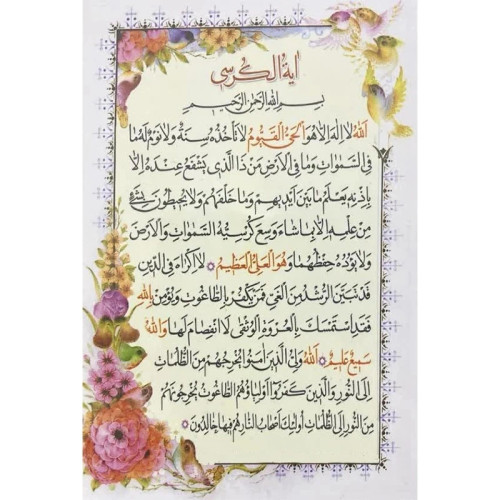 آیة الکرسی
بسم الله الرحمن الرحیم
الله لا اله الا هو الحی القیوم لا تأخذه سنة ولا نوم له ما
فی السموات وما فی الارض من ذا الذی یشفع عنده الا
باذنه یعلم ما بین ایدیهم وما خلفهم ولا یحیطون بشیء
من علمه الا بما شاء وسع کرسیه السموات والارض
ولا یؤده حفظهما وهو العلی العظیم لا اکراه فی الدین
قد تبین الرشد من الغی فمن یکفر بالطاغوت ویؤمن بالله
فقد استمسک بالعروة الوثقی لا انفصام لها والله
سمیع علیم الله ولی الذین آمنوا یخرجهم من الظلمات
الی النور والذین کفروا اولیاؤهم الطاغوت یخرجونهم
من النور الی الظلمات اولئک اصحاب النار هم فیها خالدون